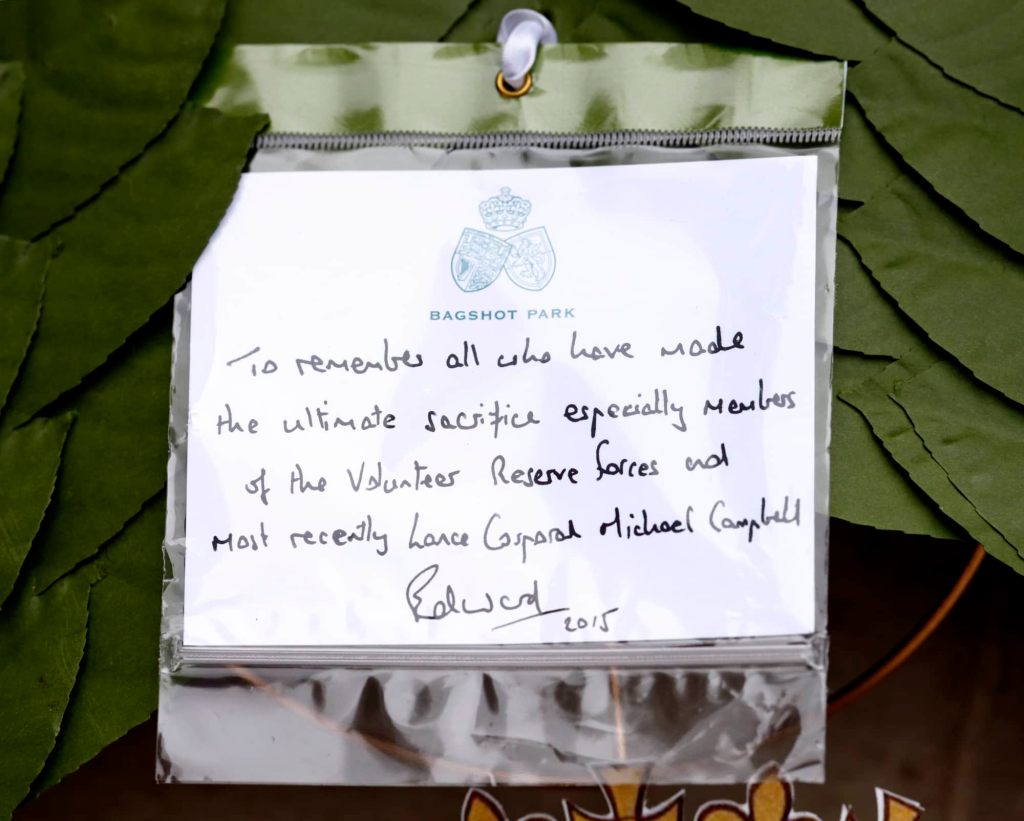 BAGSHOT PARK
To remember all who have made
the ultimate sacrifice especially members
of the Volunteer Reserve forces and
most recently Lance Corporal Michael Campbell
Edward
2015